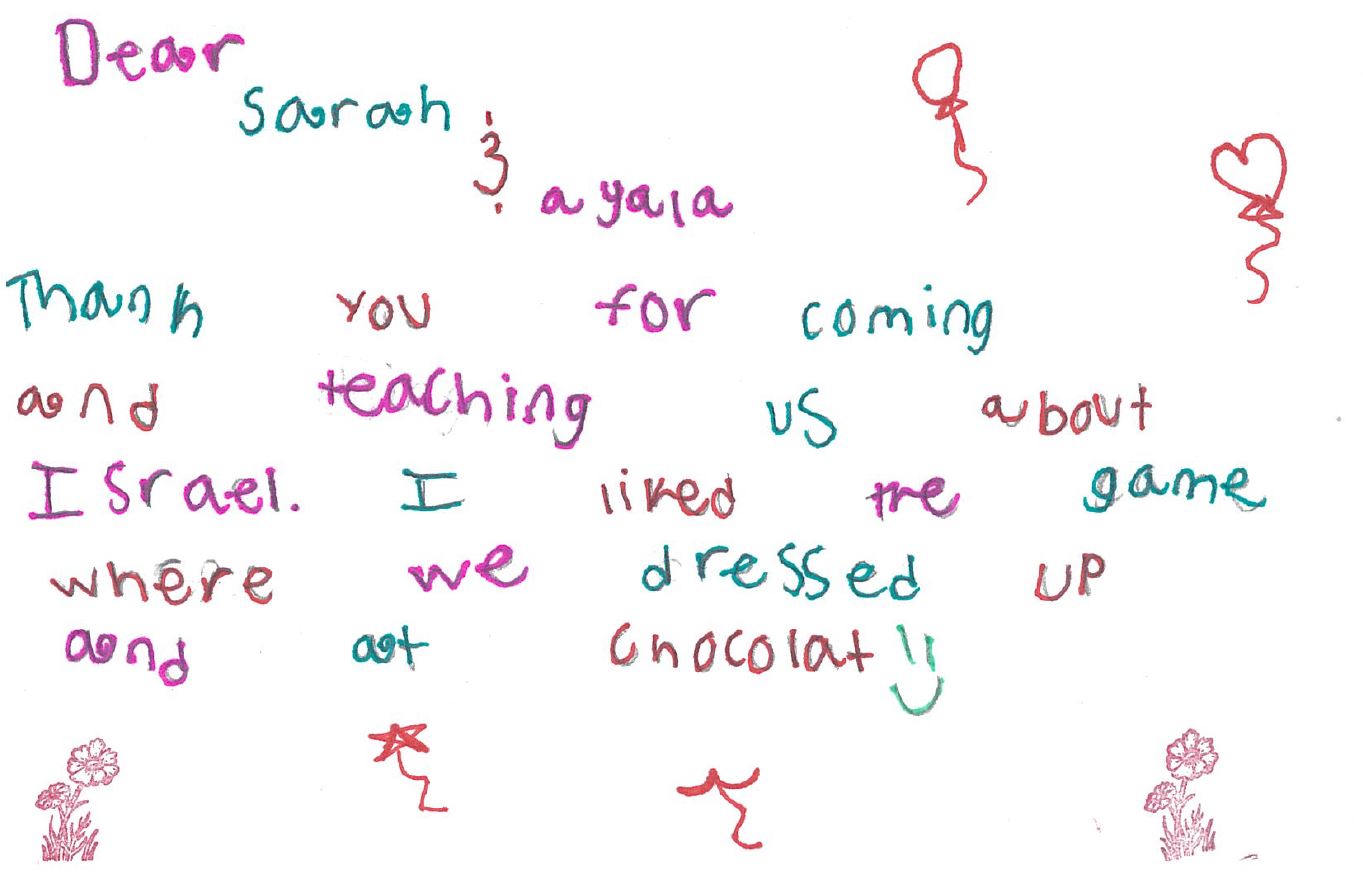 Dear
Sarah
&
ayala
Thank you for coming
and teaching us about
Israel. I liked the game
where we dressed up
and at chocolat